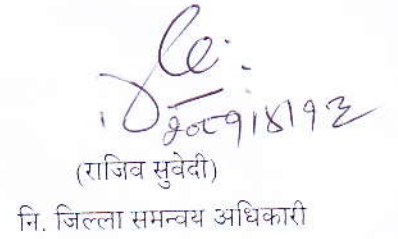 २०८१।४।१३
(राजिव सुवेदी)
नि. जिल्ला समन्वय अधिकारी